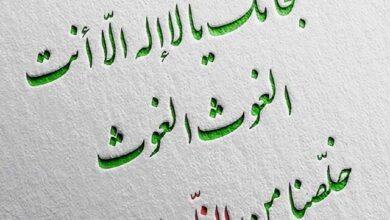 یا لا إله الّا أنت
الغوث الغوث
خلّصنا من